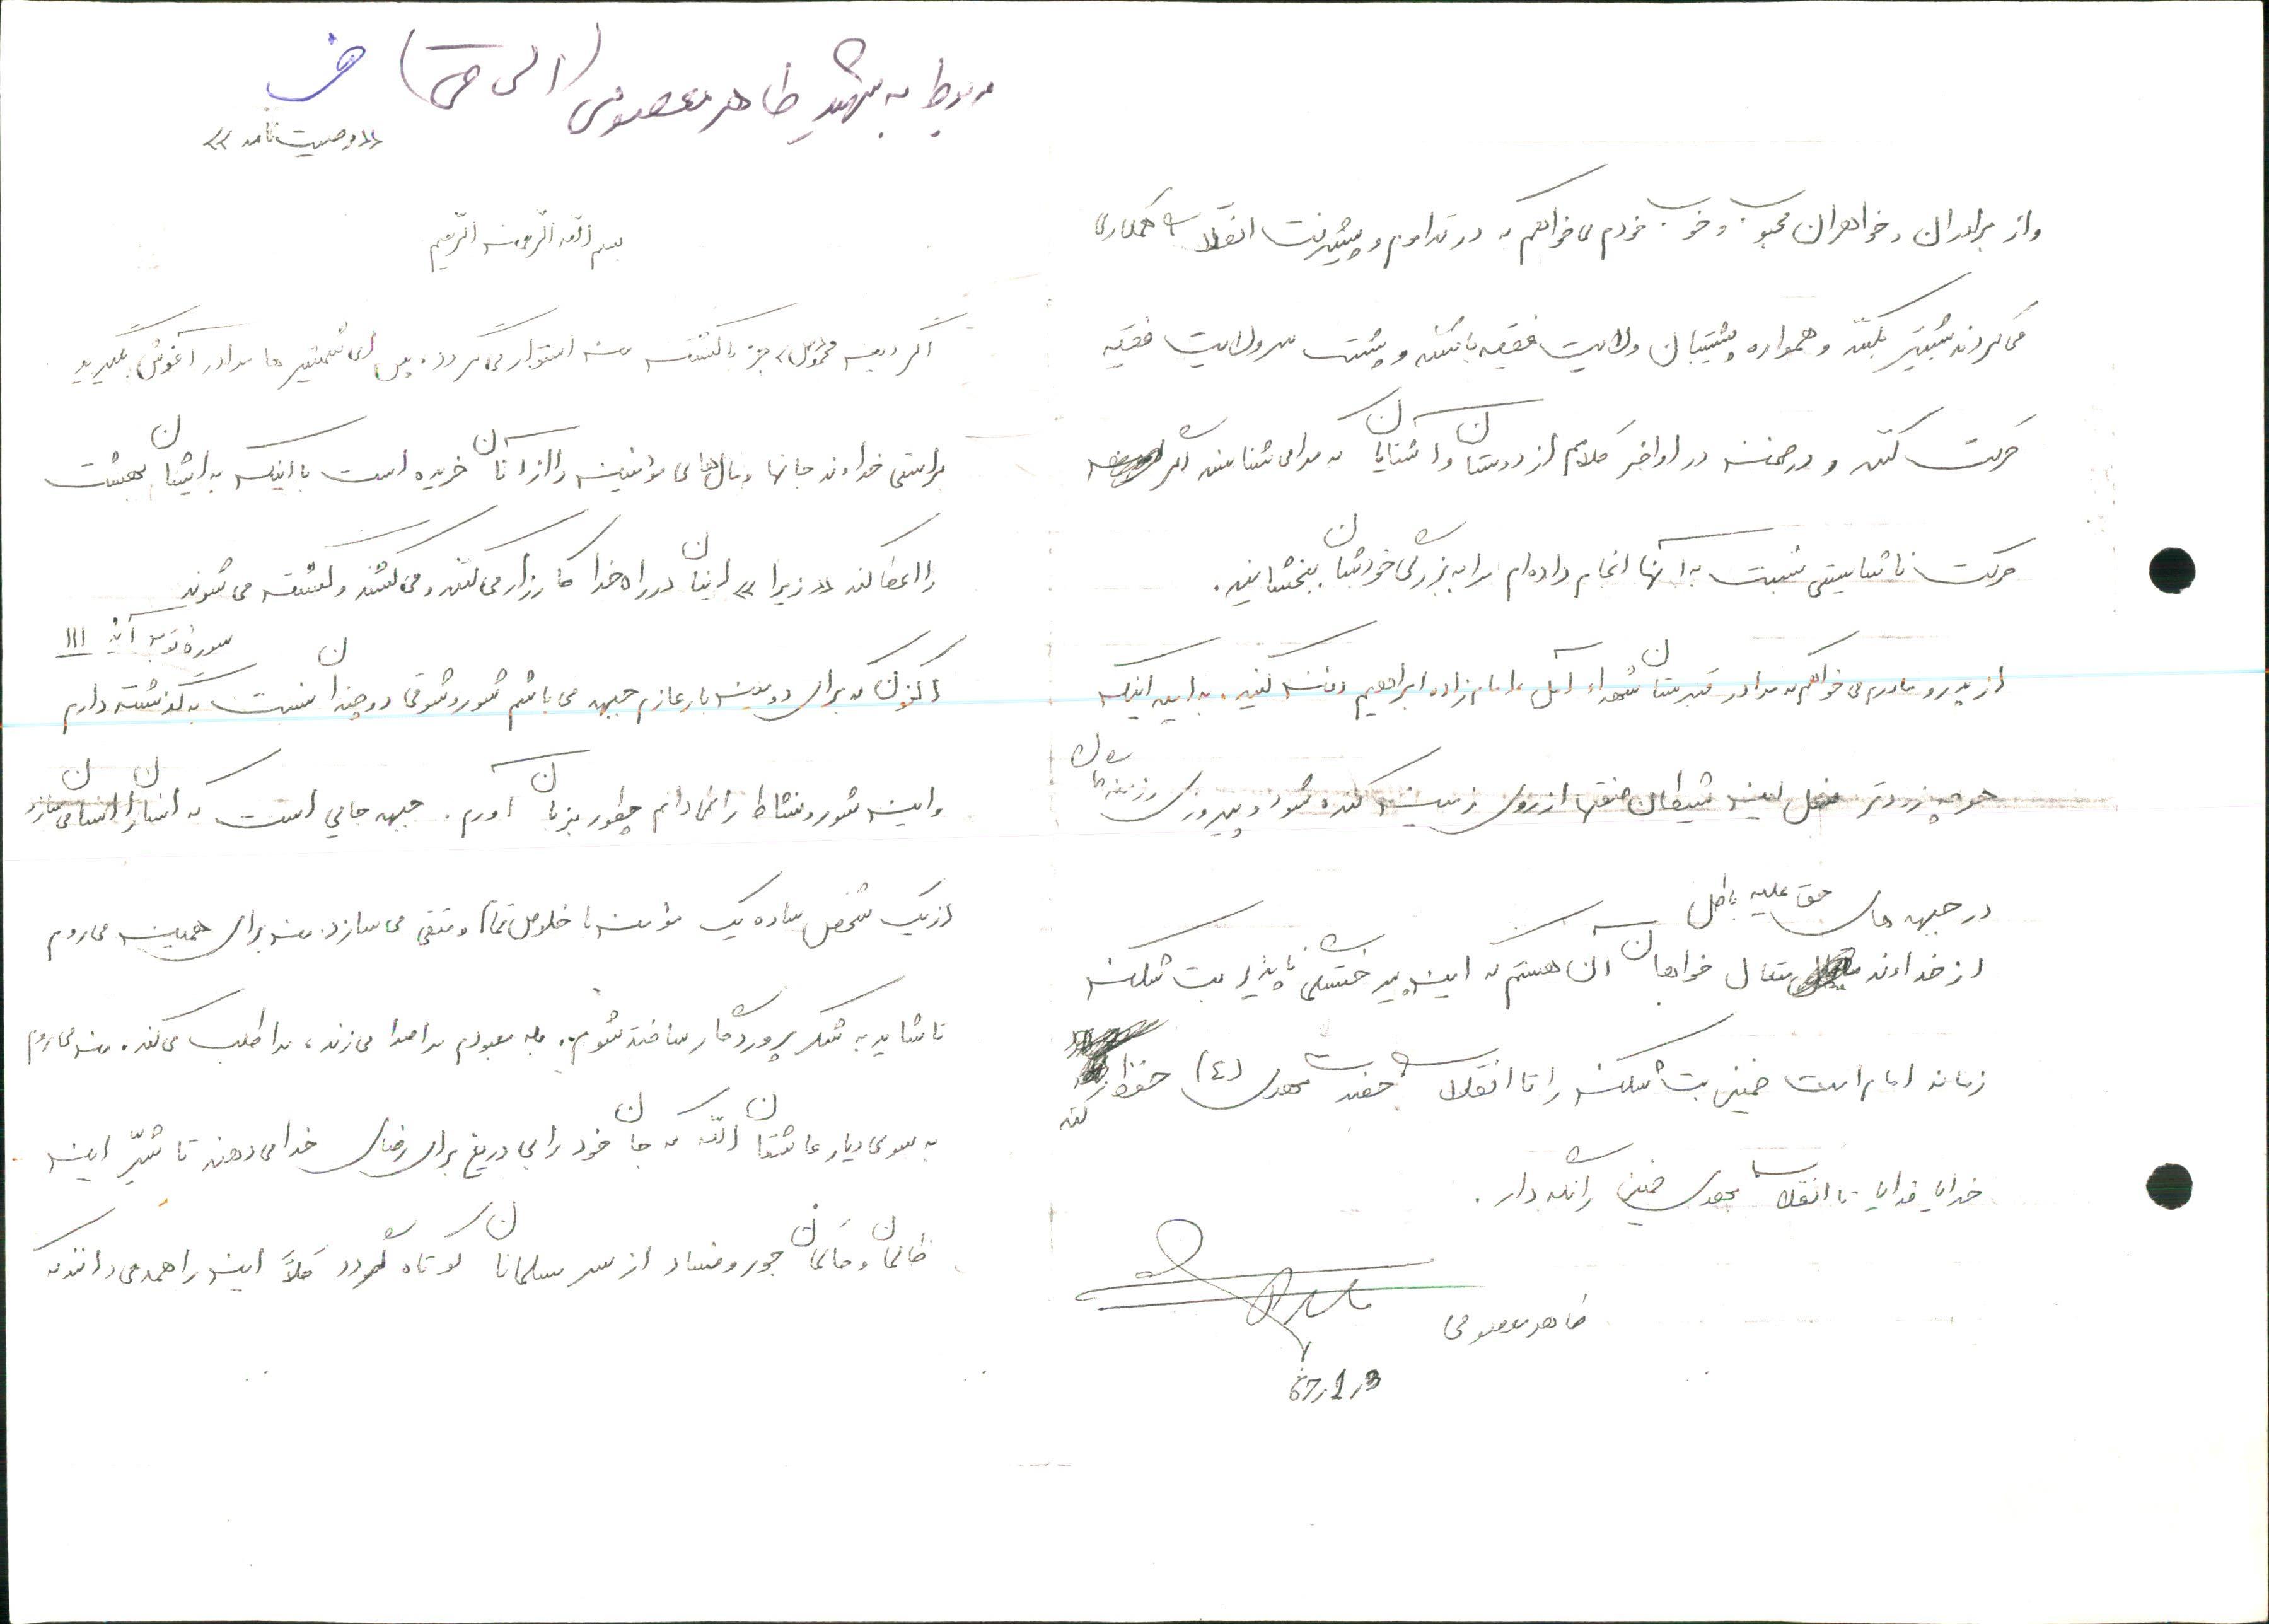 مربوط به شهید طاهر معصومی
«وصیت نامه»
بسم الله الرحمن الرحیم
اگر دین محمد (ص) جز با کشتن من استوار نمی گردد. پس ای شمشیرها مرا در آغوش بگیرید
براستی خداوند جانها و مال های مؤمنین را از آنان خریده است با اینکه به ایشان بهشت
را اعطا کند «زیرا» اینان در راه خدا کارزار می کنند و می کشند و کشته می شوند
سورة توبه آیة 111
اکنون که برای دومین بار عازم جبهه می باشم شور و شوقی دو چندان نسبت به گذشته دارم
و این شور و نشاط را نمی دانم چطور بزبان آورم. جبهه جایی است که انسان را انسان می سازد
از یک شخص ساده یک مؤمن با خلوص تمام و متقی می سازد. من برای همین می روم
تا شاید به شکر پروردگار ساخته شوم. بله معبودم مرا صدا می زند، مرا طلب می کند. من می روم
به سوی دیار عاشقان الله که جان خود را بی دریغ برای رضای خدا می دهند تا شرّ این
ظالمان و حاکمان جور و فساد از سر مسلمانان کوتاه گردد کلاً این را همه می دانند که
و از برادران و خواهران محبوب و خوب خودم می خواهم که در تداوم و پیشرفت انقلاب همکاری
می کردند بیشتر بکنند و همواره پشتیبان ولایت فقیه باشند و پشت سر ولایت فقیه
حرکت کنند و در ضمن در اواخر کلام از دوستان و آشنایان که مرا می شناسند اگر
حرکت ناشایستی نسبت به آنها انجام داده ام مرا به بزرگی خودشان ببخشایند.
از پدر و مادرم می خواهم که مرا در قبرستان شهداء آمل امام زاده ابراهیم دفن کنید. به امید اینکه
هر چه زودتر نسل این شیطان صفتها از روی زمین کنده شود و پیروزی رزمندگان
در جبهه های حق علیه باطل
از خداوند متعال خواهان آن هستم که این پیر خستگی ناپذیر بت شکن
زمانه امام امت خمینی بت شکن را تا انقلاب حضرت مهدی (ع) حفظ کند
خدایا خدایا تا انقلاب مهدی خمینی را نگه دار.
طاهر معصومی
67/1/3